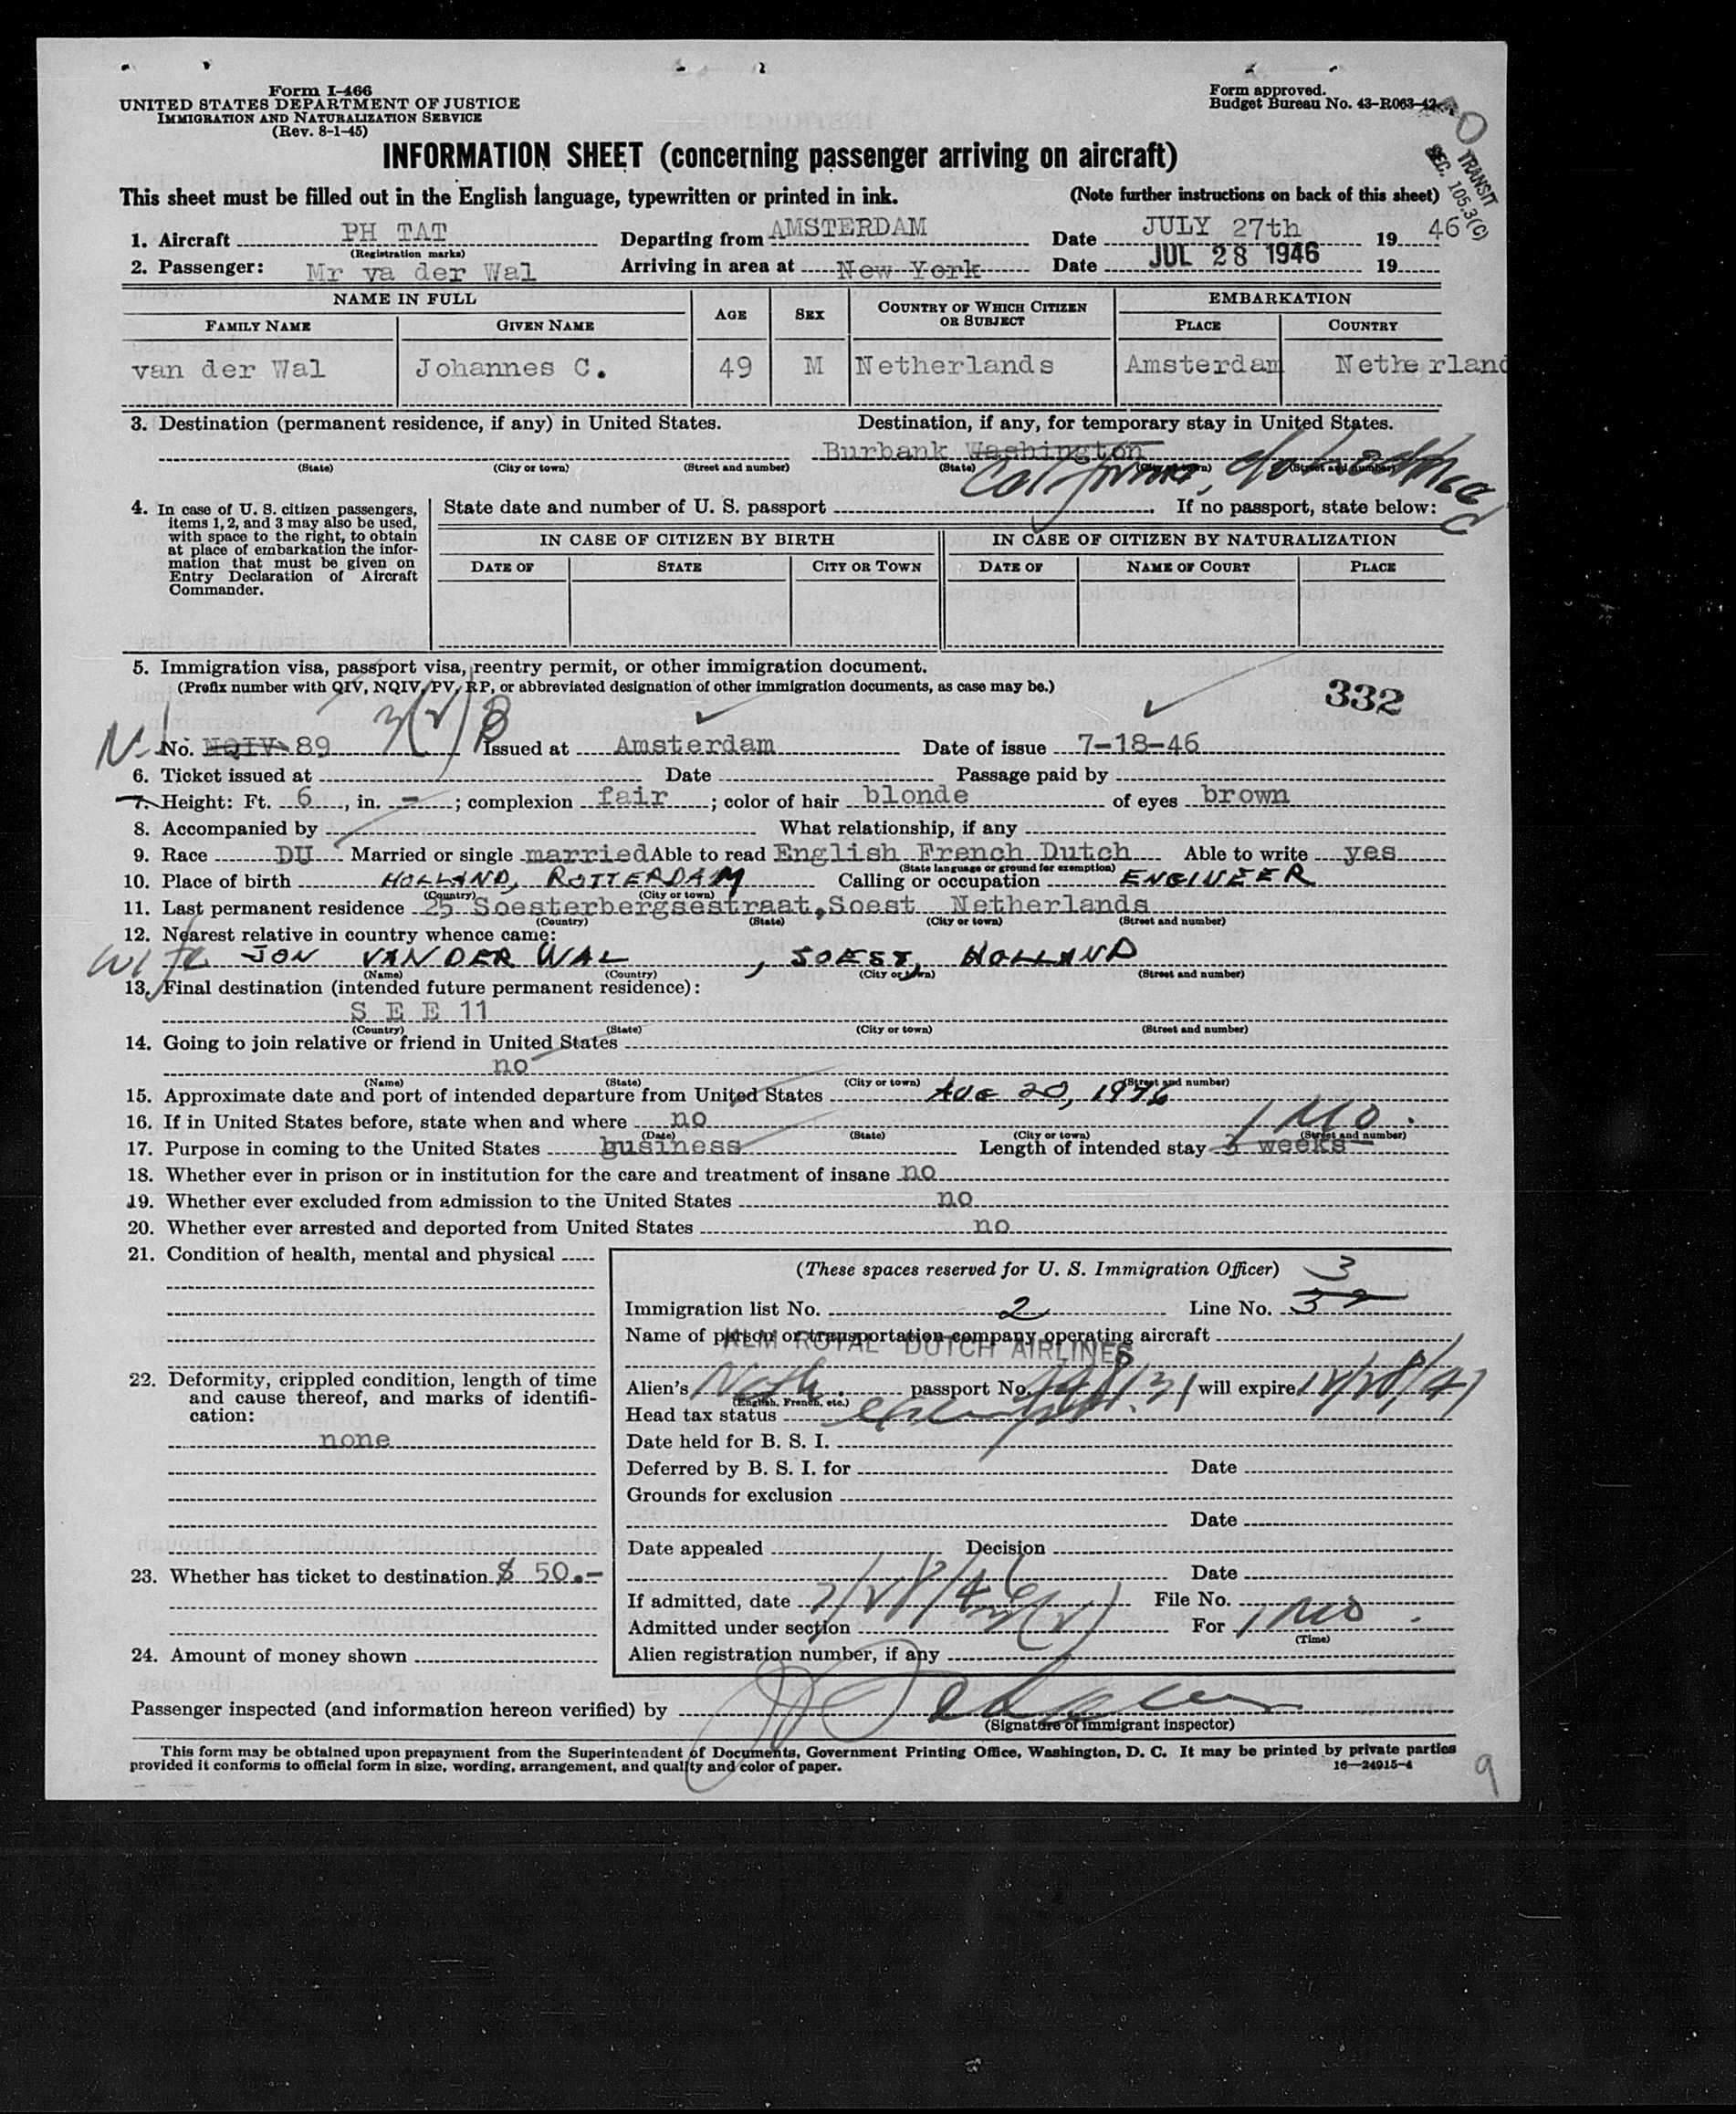 Form I-466
UNITED STATES DEPARTMENT OF JUSTICE
IMMIGRATION AND NATURALIZATION SERVICE
(Rev. 8-1-45)
Form approved.
Budget Bureau No. 43-R063-42
TRANSIT
SEC. 105.3(C)
INFORMATION SHEET (concerning passenger arriving on aircraft)
This sheet must be filled out in the English language, typewritten or printed in ink. (Note further instructions on back of this sheet)
1. Aircraft PH TAT Departing from AMSTERDAM Date JULY 27th 19 46
(Registration marks)
2. Passenger: Mr va der Wal Arriving in area at New York Date JUL 28 1946 19
NAME IN FULL AGE SEX COUNTRY OF WHICH CITIZEN OR SUBJECT EMBARKATION
FAMILY NAME GIVEN NAME PLACE COUNTRY
van der Wal Johannes C. 49 M Netherlands Amsterdam Netherland
3. Destination (permanent residence, if any) in United States. Destination, if any, for temporary stay in United States.
Burbank Washington
(State) (City or town) (Street and number) (State) (City or town) (Street and number)
California,
4. In case of U. S. citizen passengers, items 1, 2, and 3 may also be used, with space to the right, to obtain at place of embarkation the information that must be given on Entry Declaration of Aircraft Commander.
State date and number of U. S. passport If no passport, state below:
IN CASE OF CITIZEN BY BIRTH IN CASE OF CITIZEN BY NATURALIZATION
DATE OF STATE CITY OR TOWN DATE OF NAME OF COURT PLACE
5. Immigration visa, passport visa, reentry permit, or other immigration document.
(Prefix number with QIV, NQIV, PV, RP, or abbreviated designation of other immigration documents, as case may be.)
332
3(2) B
No. NQIV 89 Issued at Amsterdam Date of issue 7-18-46
6. Ticket issued at Date Passage paid by
7. Height: Ft. 6, in. -; complexion fair; color of hair blonde of eyes brown
8. Accompanied by What relationship, if any
9. Race DU Married or single married Able to read English French Dutch Able to write yes
(State language or ground for exemption)
10. Place of birth HOLLAND, ROTTERDAM Calling or occupation ENGINEER
(Country) (City or town)
11. Last permanent residence 25 Soesterbergsestraat, Soest Netherlands
(Country) (State) (City or town) (Street and number)
12. Nearest relative in country whence came:
Wife JON VAN DER WAL, SOEST, HOLLAND
(Name) (Country) (City or town) (Street and number)
13. Final destination (intended future permanent residence):
S E E 11
(Country) (State) (City or town) (Street and number)
14. Going to join relative or friend in United States
no
(Name) (State) (City or town) (Street and number)
15. Approximate date and port of intended departure from United States AUG 20, 1946
16. If in United States before, state when and where no 1 MO.
(Date) (State) (City or town) (Street and number)
17. Purpose in coming to the United States business Length of intended stay 3 weeks
18. Whether ever in prison or in institution for the care and treatment of insane no
19. Whether ever excluded from admission to the United States no
20. Whether ever arrested and deported from United States no
21. Condition of health, mental and physical
22. Deformity, crippled condition, length of time and cause thereof, and marks of identification:
none
23. Whether has ticket to destination $ 50.-
24. Amount of money shown
(These spaces reserved for U. S. Immigration Officer) 3
Immigration list No. 2 Line No. 32
Name of person or transportation company operating aircraft
KLM ROYAL DUTCH AIRLINES
Alien's Neth. passport No. will expire 12/28/47
(English, French, etc.)
Head tax status exempt
Date held for B. S. I.
Deferred by B. S. I. for Date
Grounds for exclusion
Date
Date appealed Decision
Date
If admitted, date 7/28/46 File No.
Admitted under section 3(2) For 1 MO.
(Time)
Alien registration number, if any
Passenger inspected (and information hereon verified) by
(Signature of immigrant inspector)
This form may be obtained upon prepayment from the Superintendent of Documents, Government Printing Office, Washington, D. C. It may be printed by private parties
provided it conforms to official form in size, wording, arrangement, and quality and color of paper. 16—24915-4
9